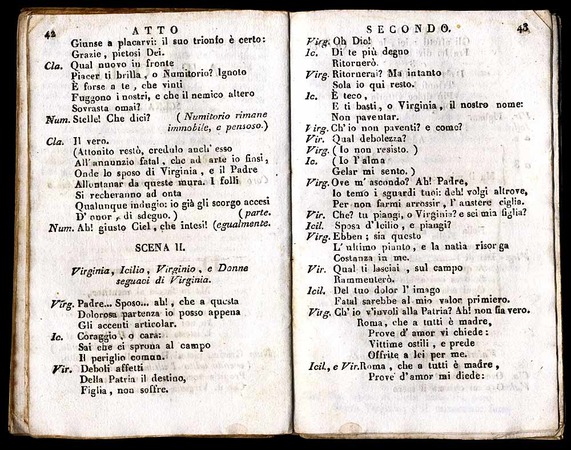 42 ATTO
Giunse a placarvi: il suo trionfo è certo:
Grazie, pietosi Dei.
Cla. Qual nuovo in fronte
Piacer ti brilla, o Numitorio? Ignoto
È forse a te, che vinti
Fuggono i nostri, e che il nemico altero
Sovrasta omai?
Num. Stelle! Che dici? (Numitorio rimane
immobile, e pensoso.)
Cla. Il vero.
(Attonito restò, credulo anch' esso
All' annunzio fatal, che ad arte io finsi,
Onde lo sposo di Virginia, e il Padre
Allontanar da queste mura. I folli
Si recheranno ad onta
Qualunque indugio: io già gli scorgo accesi
D' onor, di sdegno.) (parte.
Num. Ah! giusto Ciel, che intesi! (egualmente.
SCENA II.
Virginia, Icilio, Virginio, e Donne
seguaci di Virginia.
Virg. Padre... Sposo... ah!, che a questa
Dolorosa partenza io posso appena
Gli accenti articolar.
Ic. Coraggio, o cara:
Sai che ci sprona al campo
Il periglio comun.
Vir. Deboli affetti
Della Patria il destino,
Figlia, non soffre.
SECONDO. 43
Virg. Oh Dio!
Ic. Di te più degno
Ritornerò.
Virg. Ritornerai? Ma intanto
Sola io qui resto.
Ic. È teco,
E ti basti, o Virginia, il nostro nome:
Non paventar.
Virg. Ch' io non paventi? e come?
Vir. Qual debolezza?
Virg. (Io non resisto.)
Ic. (Io l' alma
Gelar mi sento.)
Virg. Ove m' ascondo? Ah! Padre,
Io temo i sguardi tuoi: deh! volgi altrove,
Per non farmi arrossir, l' austere ciglia.
Vir. Che? tu piangi, o Virginia? e sei mia figlia?
Icil. Sposa d' Icilio, e piangi?
Virg. Ebben; sia questo
L' ultimo pianto, e la natia risorga
Costanza in me.
Vir. Qual ti lasciai, sul campo
Rammenterò.
Icil. Del tuo dolor l' imago
Fatal sarebbe al mio valor primiero.
Virg. Ch' io v' involi alla Patria? Ah! non fia vero.
Roma, che a tutti è madre,
Prove d' amor vi chiede:
Vittime ostili, e prede
Offrite a lei per me.
Icil., e Vir. Roma, che a tutti è madre,
Prove d' amor mi diede: